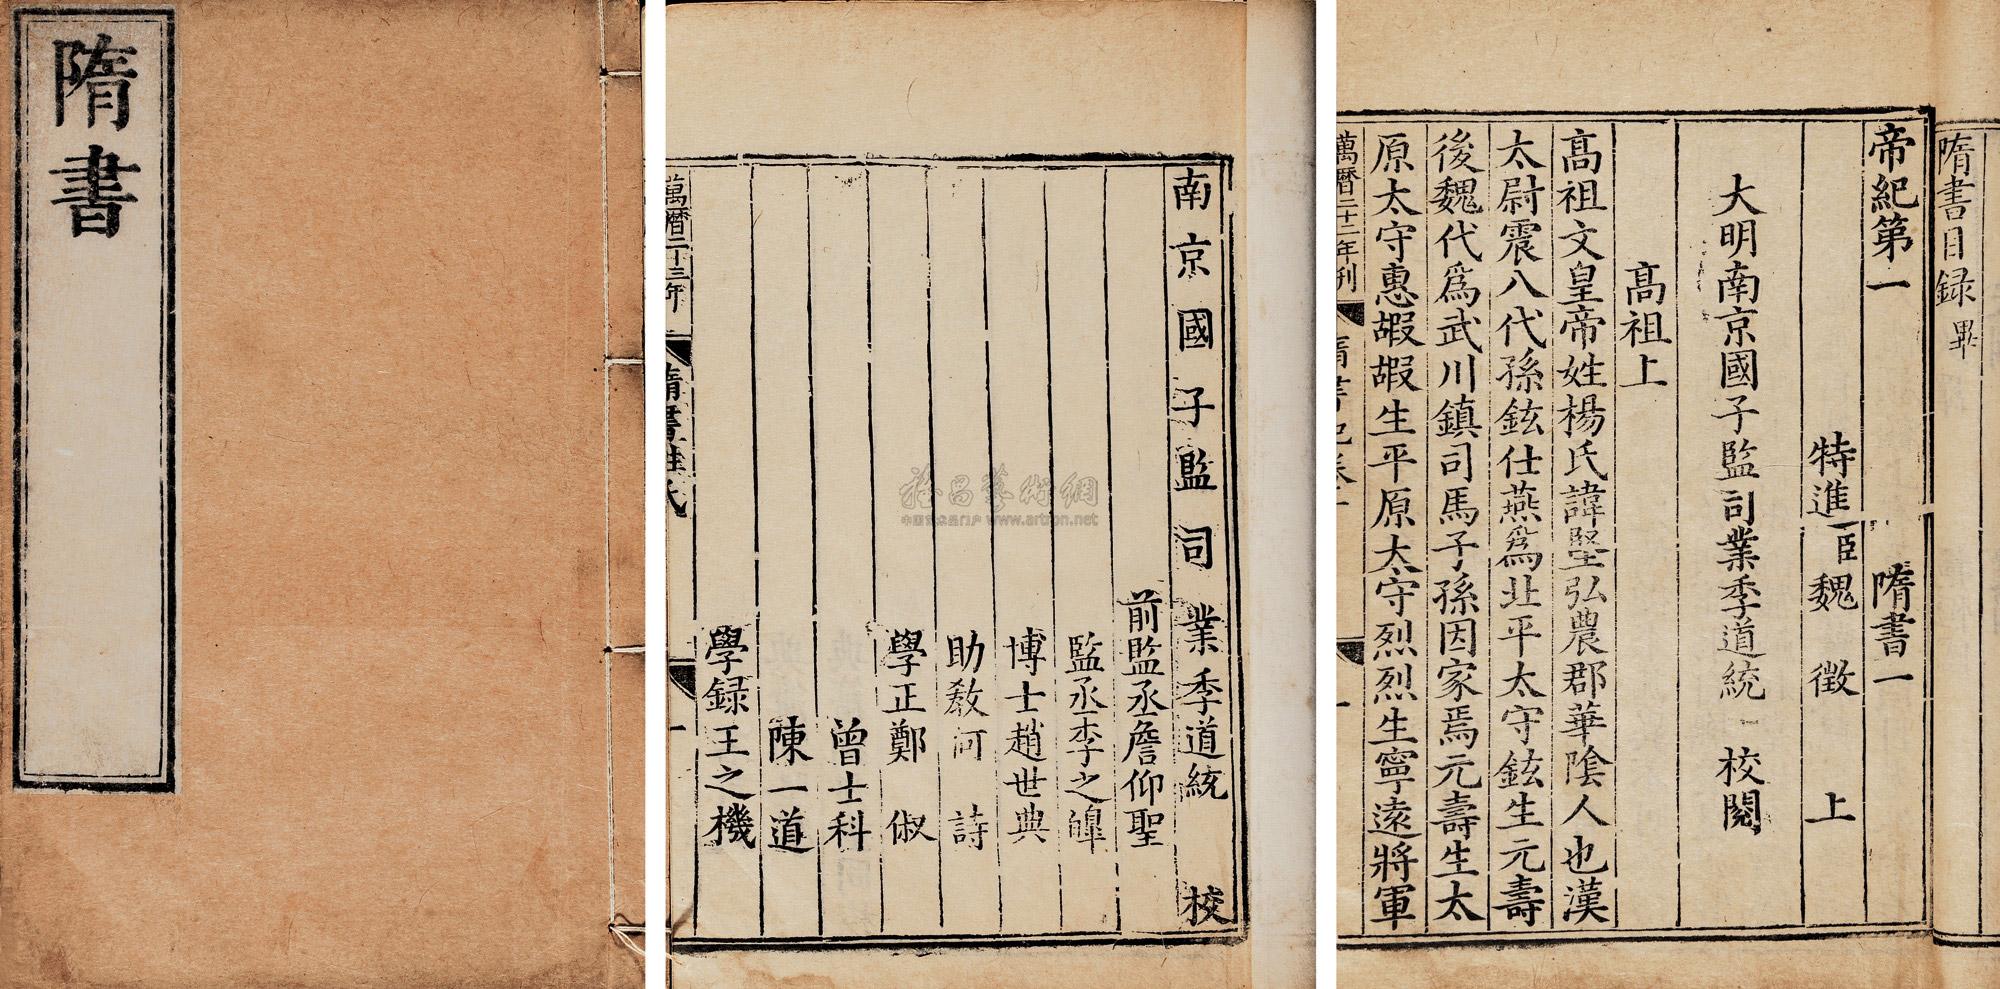 隋書
南京國子監司業季道統 校
前監丞詹仰聖
監丞李之皥
博士趙世典
助教河 詩
學正鄭 俶
曾士科
陳一道
學録王之機
萬曆二十三年
隋書姓氏
一
雅昌藝術網
中国艺术品门户 www.artron.net
隋書目録畢
帝紀第一 隋書一
特進臣魏 徵 上
大明南京國子監司業季道統 校閱
高祖上
高祖文皇帝姓楊氏諱堅弘農郡華陰人也漢
太尉震八代孫鉉仕燕爲北平太守鉉生元壽
後魏代爲武川鎮司馬子孫因家焉元壽生太
原太守惠嘏嘏生平原太守烈烈生寧遠將軍
萬曆二十二年刊